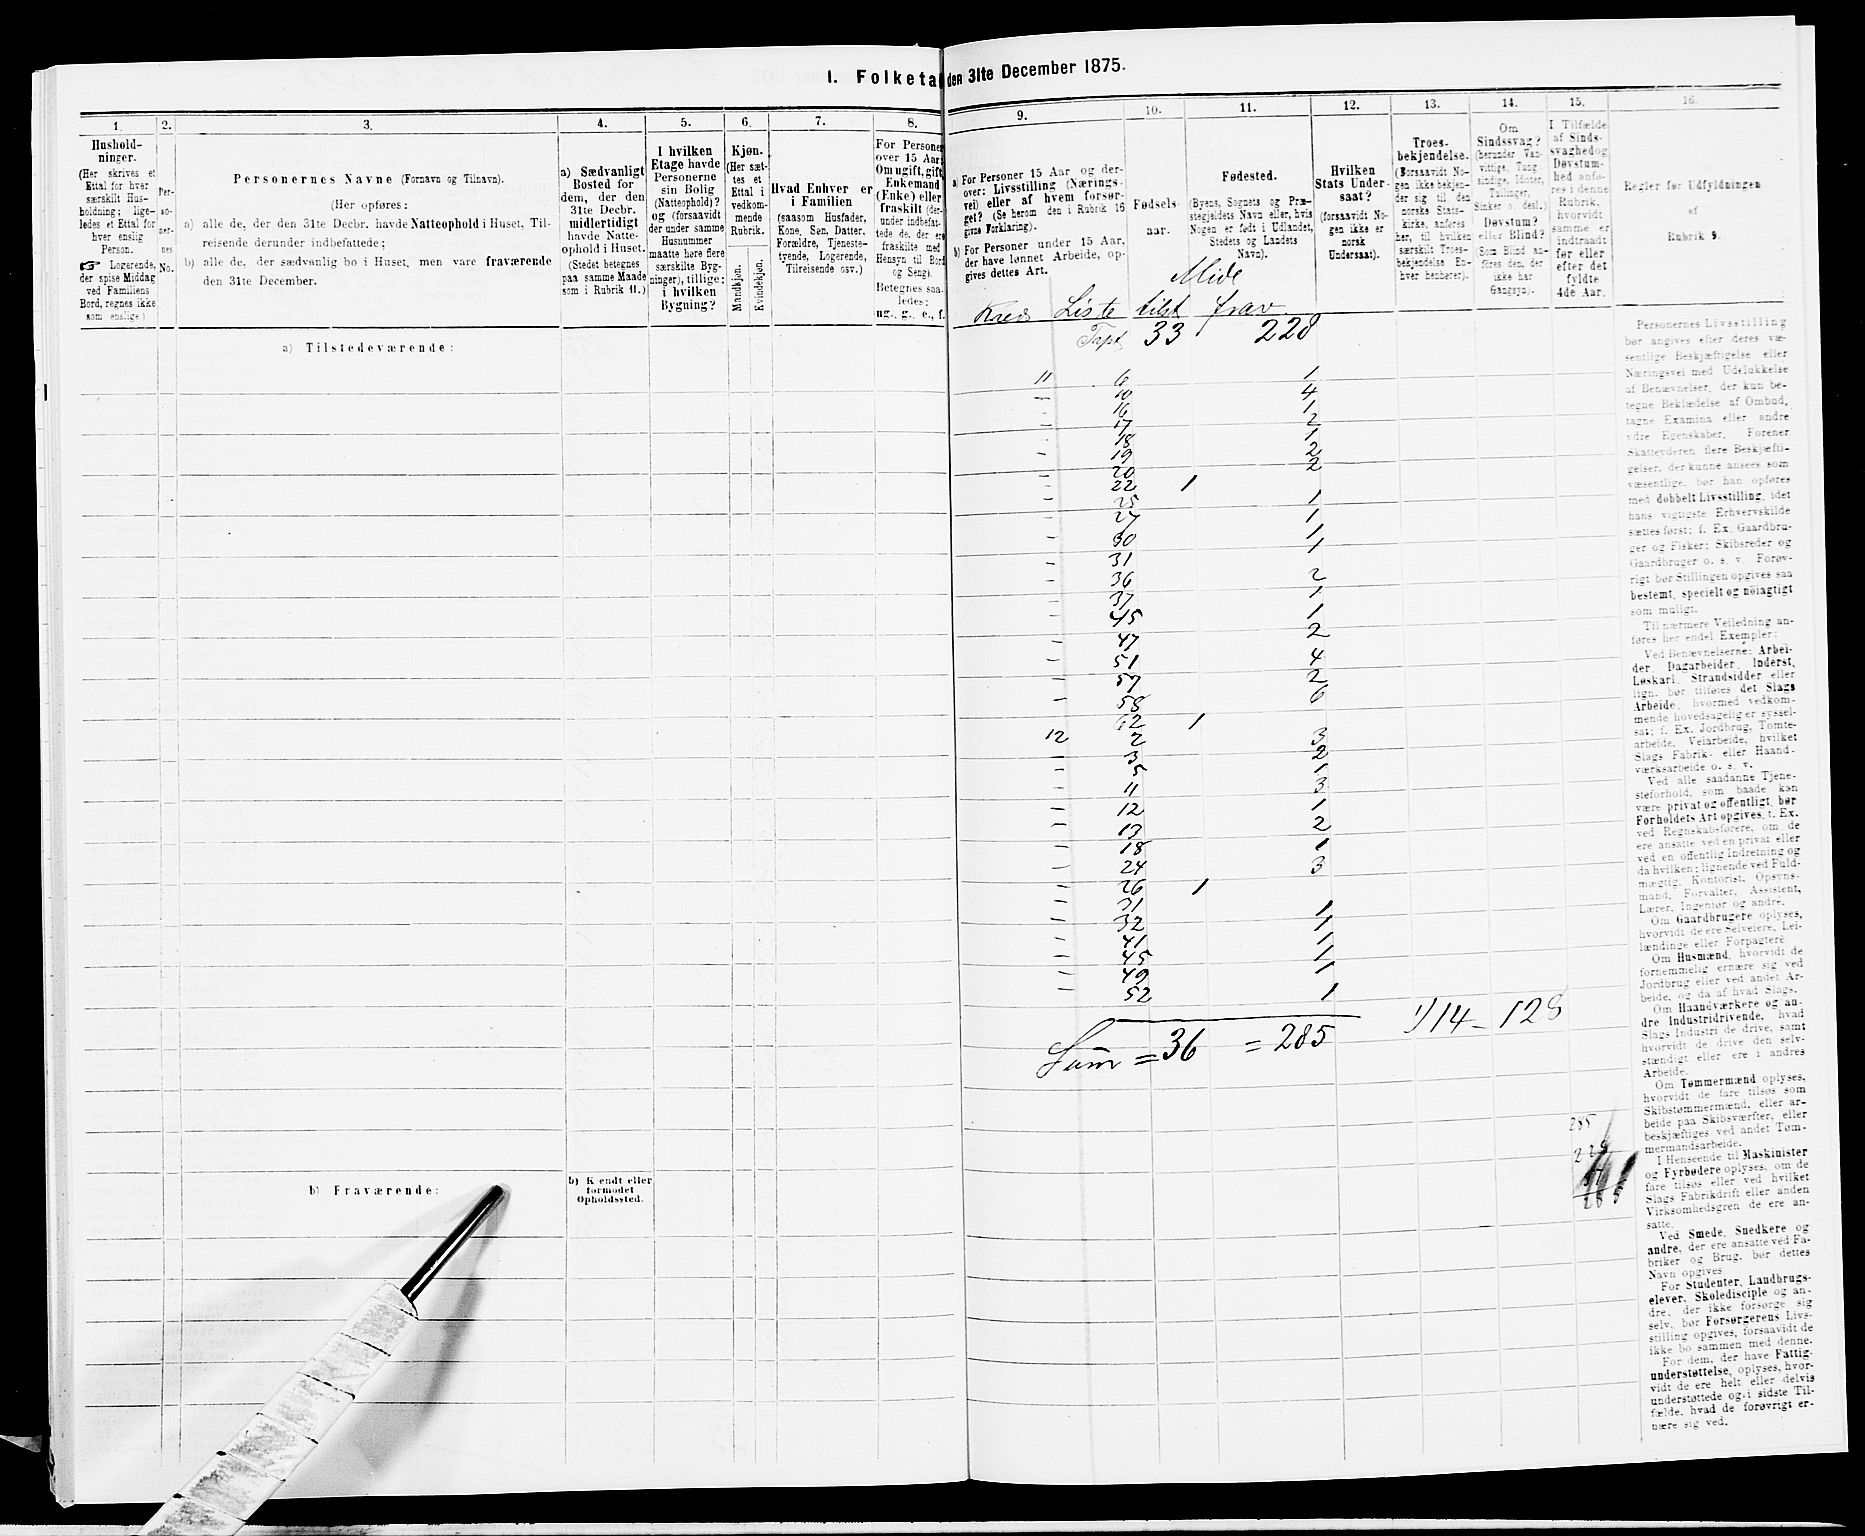 I. Folketal den 31te December 1875.
1.
Hushold-
ninger.
(Her skrives et
Ettal for hver
særskilt Hus-
holdning; lige-
ledes et Ettal for
hver enslig
Person.
☞ Logerende,
der spise Middag
ved Familiens
Bord, regnes ikke
som enslige.)
2.
Per-
so-
ner-
nes
No.
3.
Personernes Navne (Fornavn og Tilnavn).
(Her opføres:
a) alle de, der den 31te Decbr. havde Natteophold i Huset, Til-
reisende derunder indbefattede;
b) alle de, der sædvanlig bo i Huset, men vare fraværende
den 31te December.
4.
a) Sædvanligt
Bosted for
dem, der den
31te Decbr.
midlertidigt
havde Natte-
ophold i Huset.
(Stedet betegnes
paa samme Maade
som i Rubrik 11.)
5.
I hvilken
Etage havde
Personerne
sin Bolig
(Natteophold)?
og (forsaavidt
der under samme
Husnummer
maatte høre flere
særskilte Byg-
ninger), tillige:
i hvilken
Bygning?
6.
Kjøn.
(Her sæt-
tes et
Ettal i
vedkom-
mende
Rubrik.
Mandkjøn.
Kvindekjøn.
7.
Hvad Enhver er
i Familien
(saasom Husfader,
Kone, Søn, Datter,
Forældre, Tjeneste-
tyende, Logerende,
Tilreisende osv.)
8.
For Personer
over 15 Aar:
Om ugift, gift,
Enkemand
(Enke) eller
fraskilt (der-
under indbefat-
tede de, der ere
fraskilte med
Hensyn til Bord
og Seng).
Betegnes saa-
ledes:
ug., g., e., f.
9.
a) For Personer 15 Aar og der-
over: Livsstilling (Nærings-
vei) eller af hvem forsør-
get? (Se herom den i Rubrik 16
givne Forklaring).
b) For Personer under 15 Aar,
der have lønnet Arbeide, op-
gives dettes Art.
10.
Fødsels-
aar.
11.
Fødested.
(Byens, Sognets og Præ-
stegjeldets Navn eller, hvis
Nogen er født i Udlandet,
Stedets og Landets
Navn).
12.
Hvilken
Stats Under-
saat?
(forsaavidt No-
gen ikke er
norsk
Undersaat).
13.
Troes-
bekjendelse.
(Forsaavidt No-
gen ikke bekjen-
der sig til den
norske Stats-
kirke, anføres
her, til hvilken
særskilt Troes-
bekjendelse En-
hver henhører).
14.
Om
Sindssvag?
(herunder Van-
vittige, Tung-
sindige, Idioter,
Tullinger,
Sinker o. desl.).
Døvstum?
eller Blind?
(Som Blind an-
føres den, der
ikke har
Gangsyn).
15.
I Tilfælde
af Sinds-
svaghed og
Døvstum-
hed anfø-
res i denne
Rubrik,
hvorvidt
samme er
indtraadt
før eller
efter det
fyldte
4de Aar.
16.
Regler for Udfyldningen
af
Rubrik 9.
Mide
Kreds Liste tilst frav.
Tspt 33 228
11 6 1
" 10 4
" 16 1
" 17 2
" 18 1
" 19 2
" 20 2
" 22 1
" 25 1
" 27 1
" 30 1
" 31 1
" 36 2
" 37 1
" 45 1
" 47 2
" 51 4
" 57 2
" 58 6
" 62 1
12 2 3
" 3 2
" 5 1
" 11 3
" 12 1
" 13 2
" 18 1
" 24 3
" 26 1
" 31 1
" 32 1
" 41 1
" 45 1
" 49 1
" 52 1
Sum = 36 = 285
114 - 128
285
a) Tilstedeværende:
b) Fraværende:
b) Kjendt eller
formodet
Opholdssted.
Personernes Livsstilling
bør angives efter deres væ-
sentlige Beskjæftigelse eller
Næringsvei med Udelukkelse
af Benævnelser, der kun be-
tegne Beklædelse af Ombud,
tagne Examina eller andre
ydre Egenskaber. Forener
Skatteyderen flere Beskjæfti-
gelser, der kunne ansees som
væsentlige, bør han opføres
med dobbelt Livsstilling, idet
hans vigtigste Erhvervskilde
sættes først; f. Ex. Gaardbru-
ger og Fisker; Skibsreder og
Gaardbruger o. s. v. Forøv-
rigt bør Stillingen opgives saa
bestemt, specielt og nöiagtigt
som muligt.
Til nærmere Veiledning an-
føres her endel Exempler:
Ved Benævnelserne: Arbei-
der, Dagarbeider, Inderst,
Løskarl, Strandsidder eller
lign. bør tilføies det Slags
Arbeide, hvormed vedkom-
mende hovedsagelig er syssel-
sat; f. Ex. Jordbrug, Tomte-
arbeide, Veiarbeide, hvilket
Slags Fabrik- eller Haand-
værksarbeide o. s. v.
Ved alle saadanne Tjene-
steforhold, som baade kan
være privat og offentligt, bør
Forholdets Art opgives, t. Ex.
ved Regnskabsførere, om de
ere ansatte ved en privat eller
ved en offentlig Indretning og
da hvilken; lignende ved Fuld-
mægtig, Kontorist, Opsyns-
mand, Forvalter, Assistent,
Lærer, Ingeniør og andre.
Om Gaardbrugere oplyses,
hvorvidt de ere Selveiere, Lei-
lændinge eller Forpagtere.
Om Husmænd, hvorvidt de
fornemmelig ernære sig ved
Jordbrug eller ved andet Ar-
beide, og da af hvad Slags.
Om Haandværkere og an-
dre Industridrivende, hvad
Slags Industri de drive, samt
hvorvidt de drive den selv-
stændigt eller ere i andres
Arbeide.
Om Tømmermænd oplyses,
hvorvidt de fare tilsøs som
Skibstømmermænd, eller ar-
beide paa Skibsværfter, eller
beskjæftiges ved andet Tøm-
mermandsarbeide.
I Henseende til Maskinister
og Fyrbødere oplyses, om de
fare tilsøs eller ved hvilket
Slags Fabrikdrift eller anden
Virksomhedsgren de ere an-
satte.
Ved Smede, Snedkere og
andre, der ere ansatte ved Fa-
briker og Brug, bør dettes
Navn opgives
For Studenter, Landbrugs-
elever, Skoledisciple og an-
dre, der ikke forsørge sig
selv, bør Forsørgerens Livs-
stilling opgives, forsaavidt de
ikke bo sammen med denne.
For dem, der have Fattig-
understøttelse, oplyses, hvor-
vidt de ere helt eller delvis
understøttede og i sidste Til-
fælde, hvad de forøvrigt er-
nære sig ved.